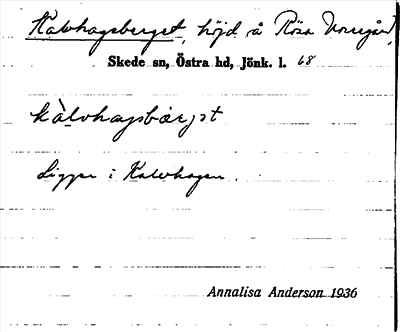 Kalvhagsberget, höjd å Rösa Norregård,
Skede sn, Östra hd, Jönk. l. 68
kàlvhagsbärjət
Ligger i Kalvhagen.
Annalisa Anderson 1936